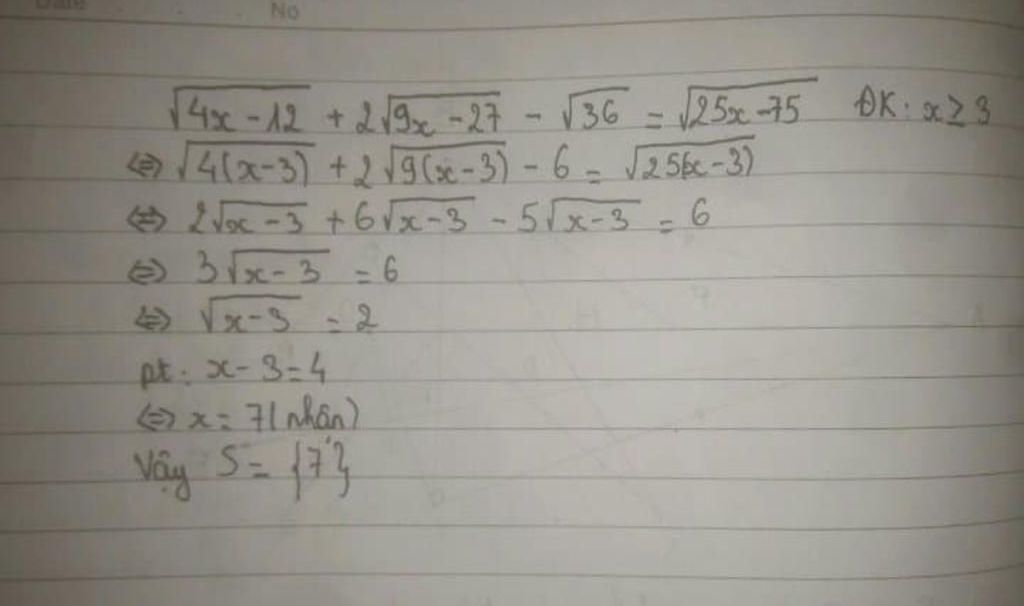 Date No
√(4x-12) + 2√(9x-27) - √36 = √(25x-75) ĐK: x ≥ 3
⇔ √(4(x-3)) + 2√(9(x-3)) - 6 = √(25(x-3))
⇔ 2√(x-3) + 6√(x-3) - 5√(x-3) = 6
⇔ 3√(x-3) = 6
⇔ √(x-3) = 2
pt: x-3=4
⇔ x = 7 (nhân)
Vậy S = {7}